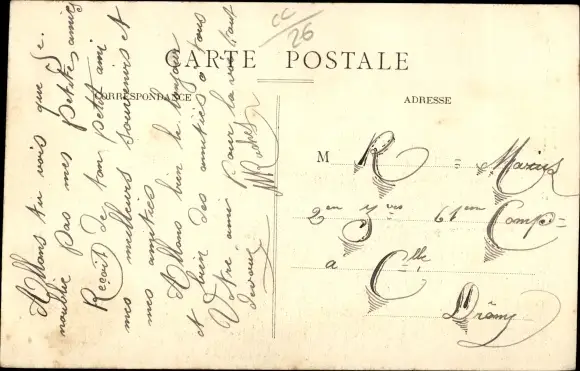 CC
26
CARTE POSTALE
CORRESPONDANCE
ADRESSE
Allons tu vois que je
noublie pas mes petites amies
Reçoit de ton petit ami
mes meilleurs souvenirs et
mes amitiés
Allons bien le bonjour
et bien des amitiés a tous
Votre ami Pour la vie tout
devoué
M R Marius
2en 61eme Comp=
a C
Drôme